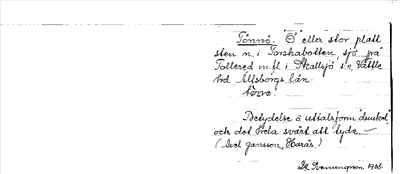 Tönnö. "Ö" eller stor platt
sten n. i Torskabotten, sjö på
Tollered m.fl. i Skallsjö sn, Vättle
hd, Älfsborgs län.
Betydelse å uttalsform dunkel,
och det hela svårt att tyda. –
(Axel Jansson, Harås.)
1968.